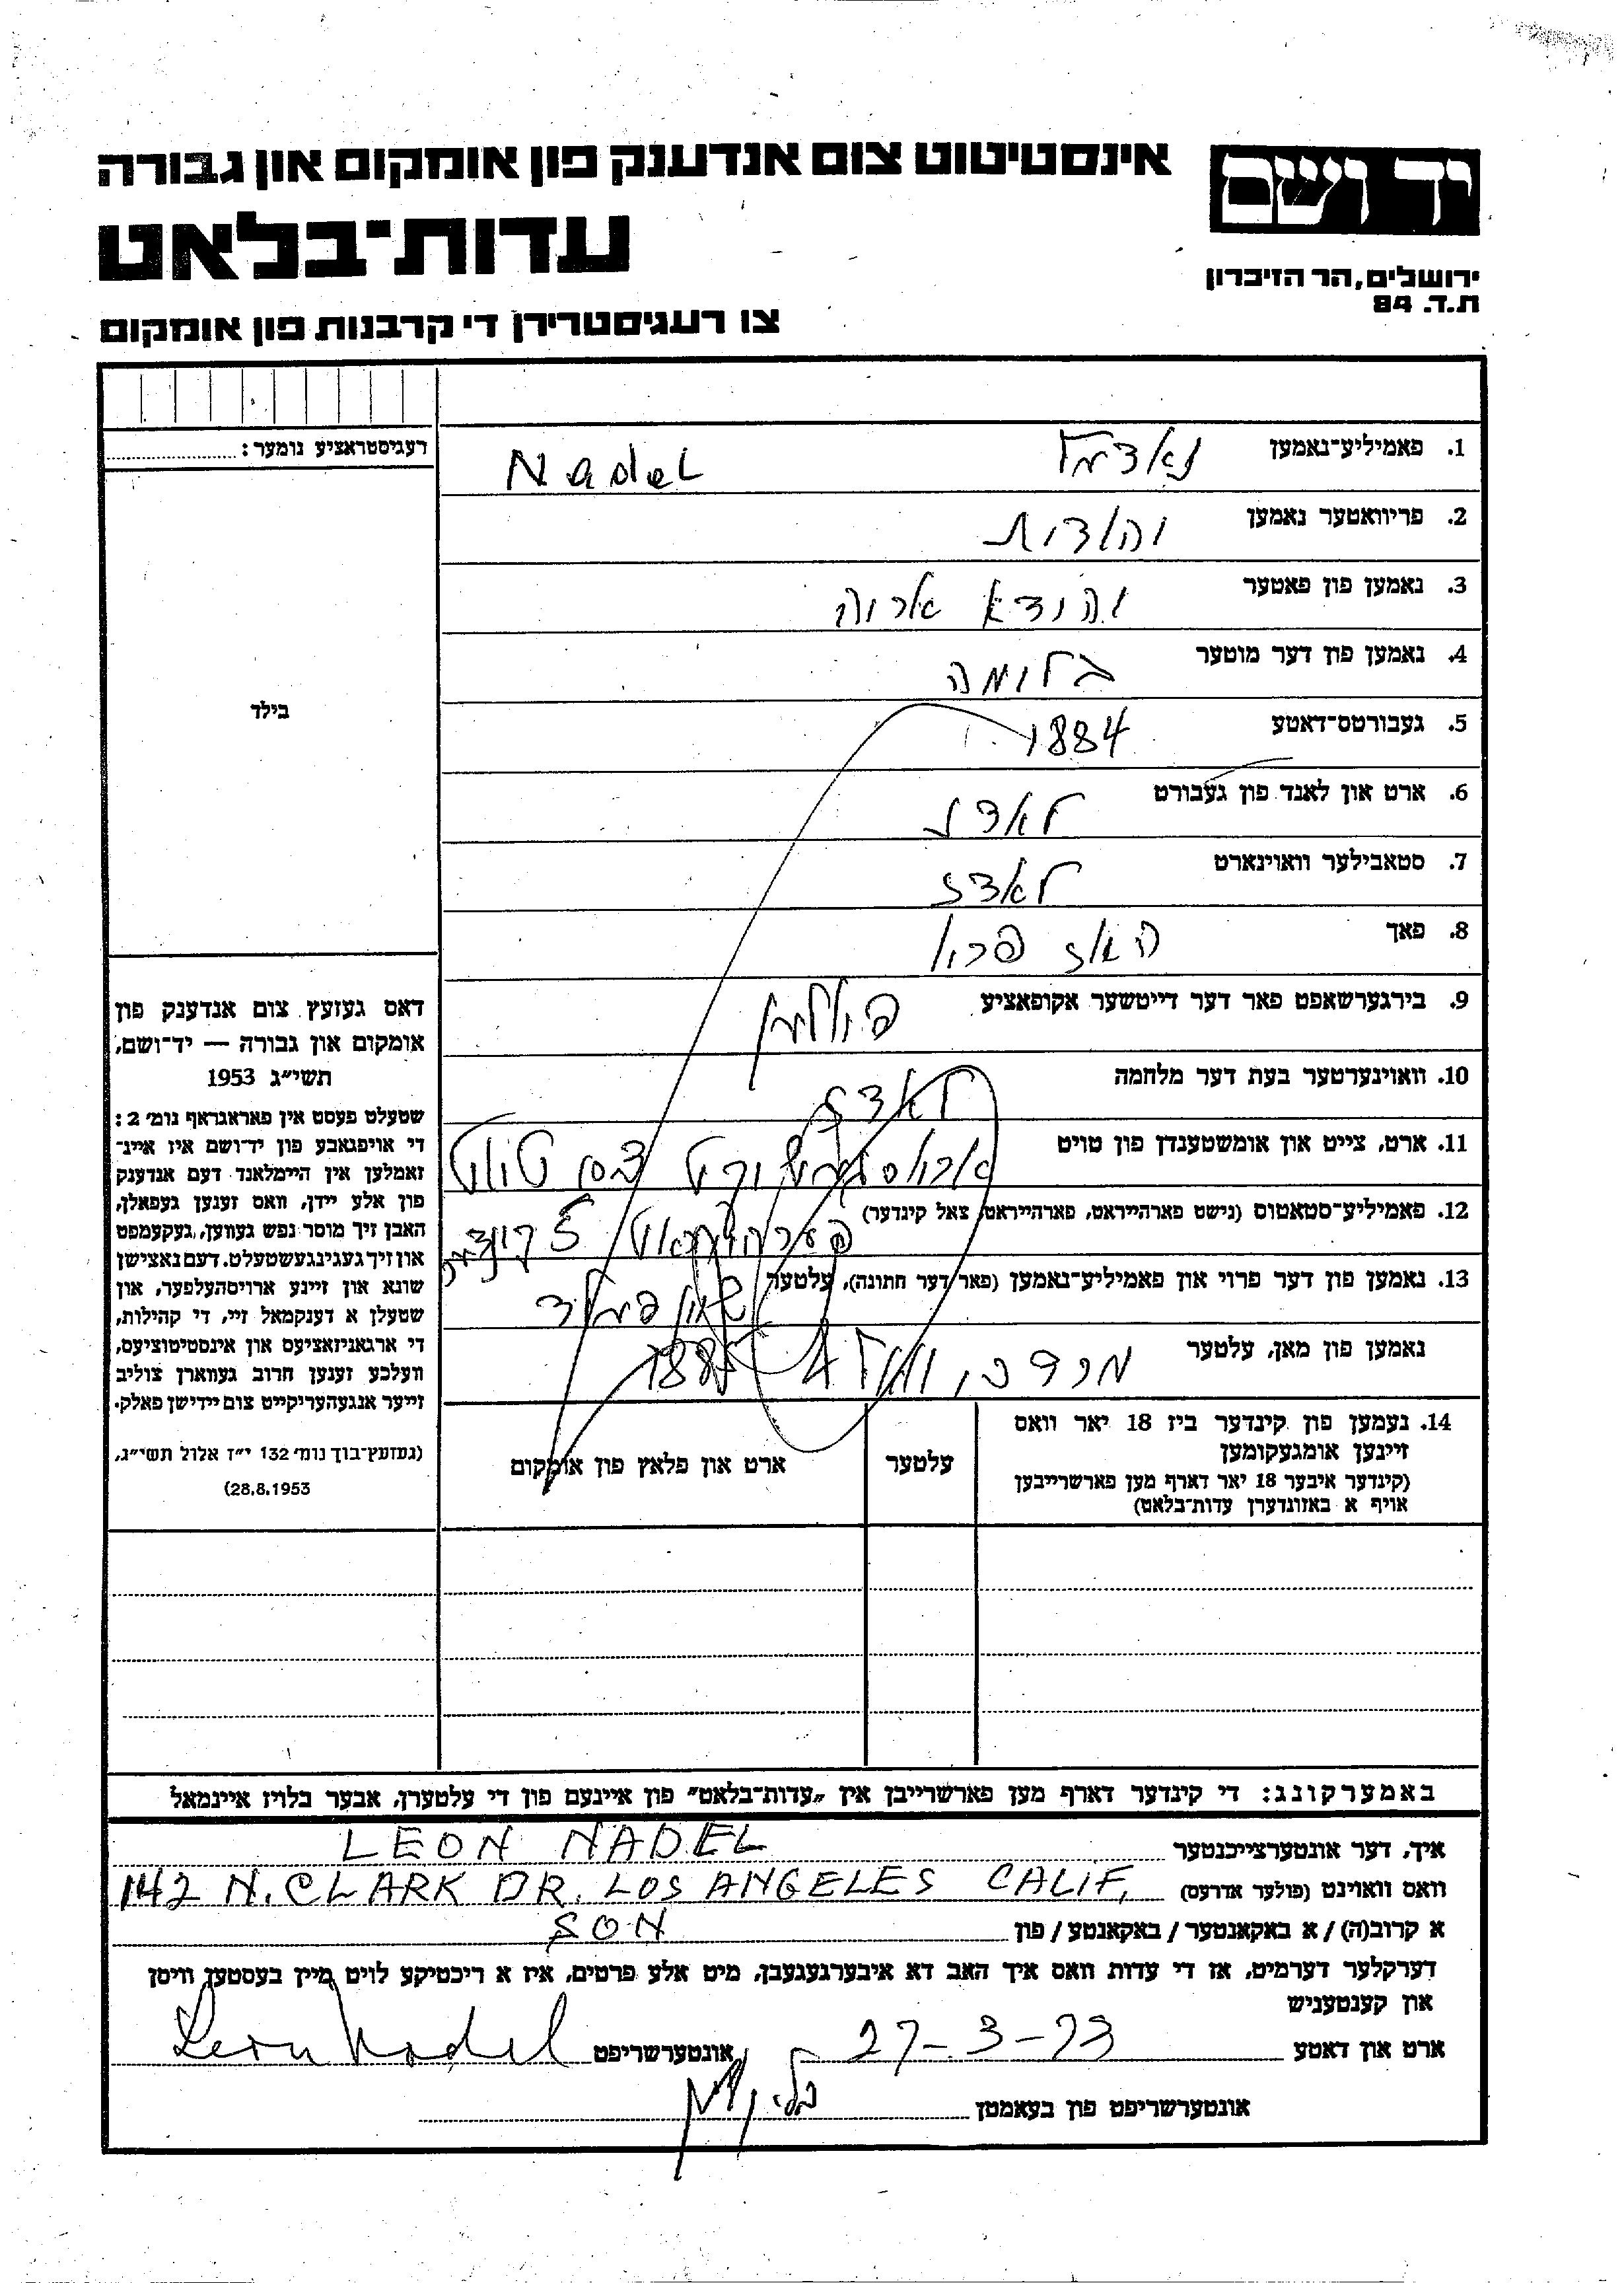 אינסטיטוט צום אנדענק פון אומקום און גבורה
יד ושם
עדות־בלאט
ירושלים, הר הזיכרון
ת.ד. 84
צו רעגיסטרירן די קרבנות פון אומקום
רעגיסטראציע נומער:
בילד
דאס געזעץ צום אנדענק פון
אומקום און גבורה — יד־ושם,
תשי״ג 1953
שטעלט פעסט אין פאראגראף נומ׳ 2:
די אויפגאבע פון יד־ושם איז איינ־
זאמלען אין היימלאנד דעם אנדענק
פון אלע יידן, וואס זענען געפאלן,
האבן זיך מוסר נפש געווען, געקעמפט
און זיך געגינגעשטעלט. דעם נאצישן
שונא און זיינע ארויסהעלפער, און
שטעלן א דענקמאל זיי, די קהילות,
די ארגאניזאציעס און אינסטיטוציעס,
וועלכע זענען חרוב געווארן צוליב
זייער אנגעהעריקייט צום יידישן פאלק.
(געזעץ־בוך נומ׳ 132 י״ז אלול תשי״ג,
28.8.1953)
1. פאמיליע־נאמען נאדעל Nadel
2. פריוואטער נאמען יהודית
3. נאמען פון פאטער יהודא אריה
4. נאמען פון דער מוטער בלומה
5. געבורטס־דאטע 1884
6. ארט און לאנד פון געבורט לאדז
7. סטאבילער וואוינארט לאדז
8. פאך האז פרוי
9. בירגערשאפט פאר דער דייטשער אקופאציע פוילען
10. וואוינערטער בעת דער מלחמה לאדז
11. ארט, צייט און אומשטענדן פון טויט טויט
12. פאמיליע־סטאטוס (נישט פארהייראט, פארהייראט, צאל קינדער)
13. נאמען פון דער פרוי און פאמיליע־נאמען (פאר דער חתונה), עלטער
נאמען פון מאן, עלטער מרדכי
14. נעמען פון קינדער ביז 18 יאר וואס
זיינען אומגעקומען
(קינדער איבער 18 יאר דארף מען פארשרייבן
אויף א באזונדערן עדות־בלאט)
עלטער
ארט און פלאץ פון אומקום
באמערקונג: די קינדער דארף מען פארשרייבן אין „עדות־בלאט״ פון איינעם פון די עלטערן, אבער בלויז איינמאל
איך, דער אונטערצייכנטער LEON NADEL
וואס וואוינט (פולער אדרעס) 142 N. CLARK DR. LOS ANGELES CALIF,
א קרוב(ה) / א באקאנטער / באקאנטע / פון SON
דערקלער דערמיט, אז די עדות וואס איך האב דא איבערגעגעבן, מיט אלע פרטים, איז א ריכטיקע לויט מיין בעסטען וויסן
און קענטעניש
ארט און דאטע 27-3-73 אונטערשריפט Leon Nadel
אונטערשריפט פון בעאמטן